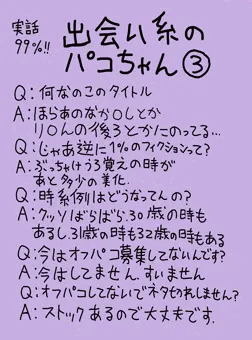 実話
99%!!
出会い系の
パコちゃん③
Q: 何なのこのタイトル
A: ほらあのなか〇しとか
り〇んの後ろとかにのってる…
Q: じゃあ逆に1%のフィクションって?
A: ぶっちゃけうろ覚えの時が
あと多少の美化.
Q: 時系例はどうなってんの?
A: クッソばらばら.30歳の時も
あるし.31歳の時も32歳の時もある
Q: 今はオフパコ募集してないんです?
A: 今はしてません.すいません
Q: オフパコしてないでネタ切れしません?
A: ストックあるので大丈夫です.